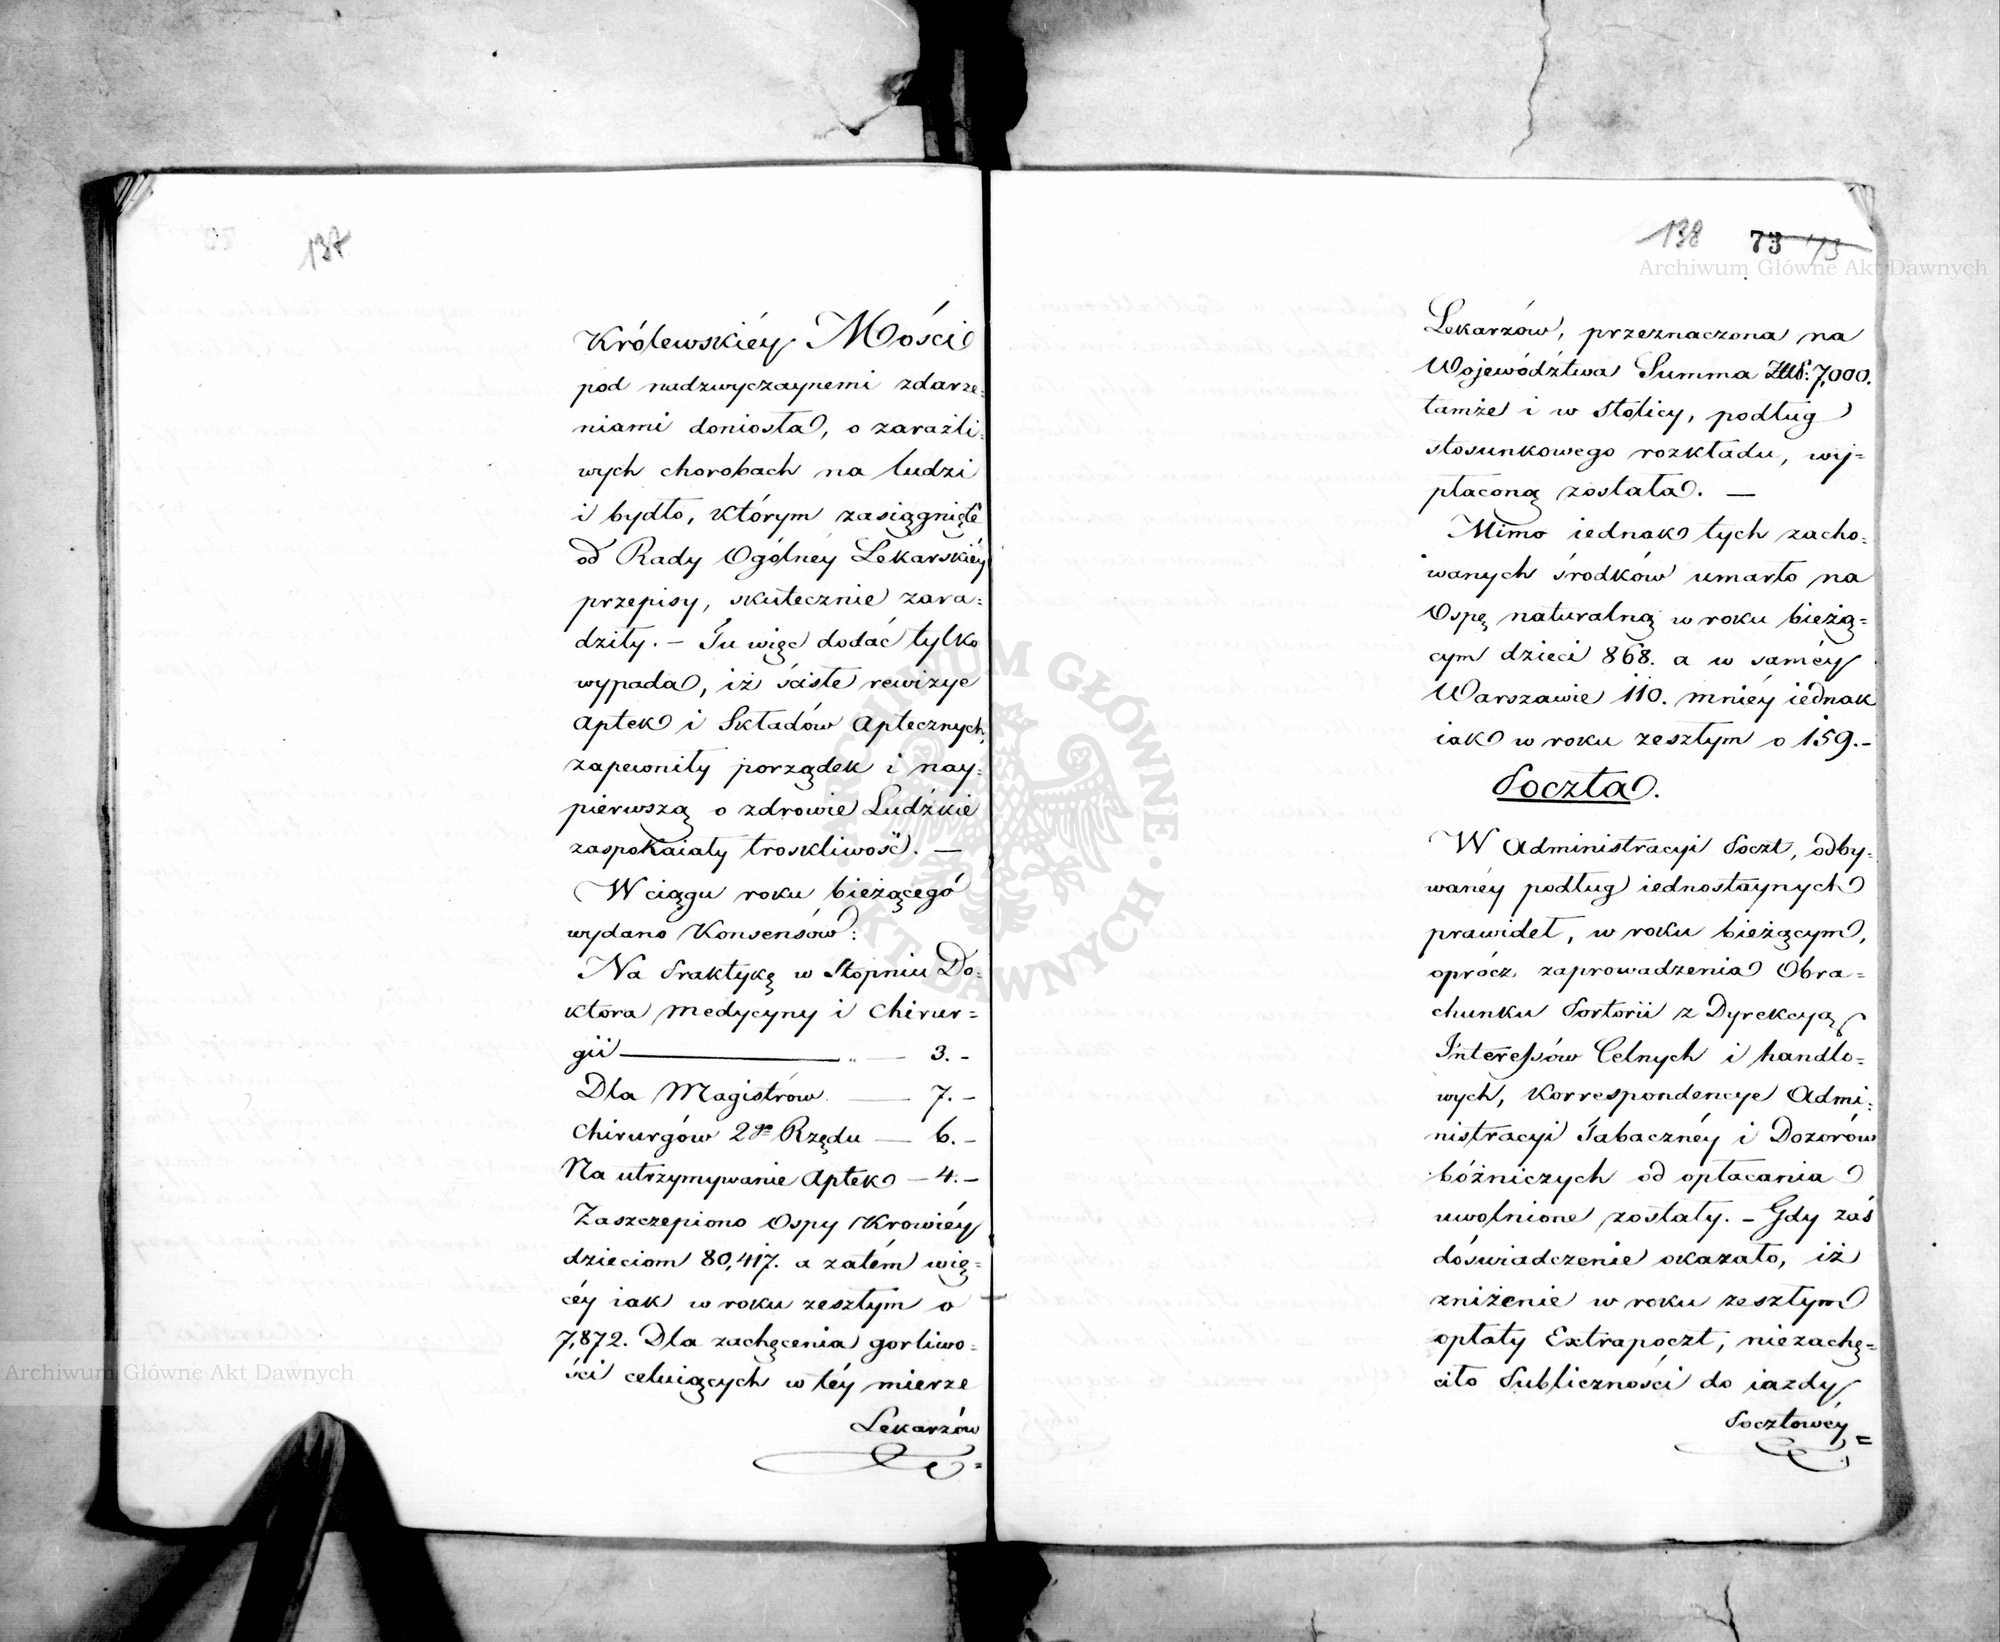 137
Królewskiéy Mości
pod nadzwyczaynemi zdarze=
niami doniosła, o zaraźli=
wych chorobach na ludzi
i bydło, którym zasiągnięte
od Rady Ogólnéy Lekarskiéy
przepisy, skutecznie zara=
dziły. – Tu więc dodać tylko
wypada, iż ścisłe rewizye
Aptek i Składów Aptecznych,
zapewniły porządek i nay=
pierwszą o zdrowie Ludzkie
zaspokaiały troskliwość. —
W ciągu roku bieżącego
wydano Konsensów:
Na Praktykę w Stopniu Do=
ktora medycyny i Chirur=
gii — „ — 3. –
Dla Magistrów — 7. –
Chirurgów 2go Rzędu — 6. –
Na utrzymywanie Aptek — 4. –
Zaszczepiono Ospy Krowiéy
dzieciom 80,417. a zatém wię=
céy iak w roku zeszłym o
7,872. Dla zachęcenia gorliwo=
ści celuiących w téy mierze
Lekarzów
138 73
Lekarzów, przeznaczona na
Województwa Summa Złł: 7,000.
tamże i w Stolicy, podług
stosunkowego rozkładu, wy=
płaconą została. —
Mimo iednak tych zacho=
wanych środków umarło na
Ospę naturalną w roku bieżą=
cym dzieci 868. a w saméy
Warszawie 110. mniéy iednak
iak w roku zeszłym o 159. –
Poczta.
W Administracyi Poczt, odby=
wanéy podług iednostaynych
prawideł, w roku bieżącym,
oprócz zaprowadzenia Obra=
chunku Portorii z Dyrekcyą
Interessów Celnych i handlo=
wych, Korrespondencye Admi=
nistracyi Tabacznéy i Dozorów
bóżniczych od opłacania
uwolnione zostały. – Gdy zaś
doświadczenie okazało, iż
zniżenie w roku zeszłym
opłaty Extrapoczt, niezachę=
ciło Publiczności do iazdy
Pocztowéy =
Archiwum Główne Akt Dawnych
Archiwum Główne Akt Dawnych
ARCHIWUM GŁÓWNE AKT DAWNYCH